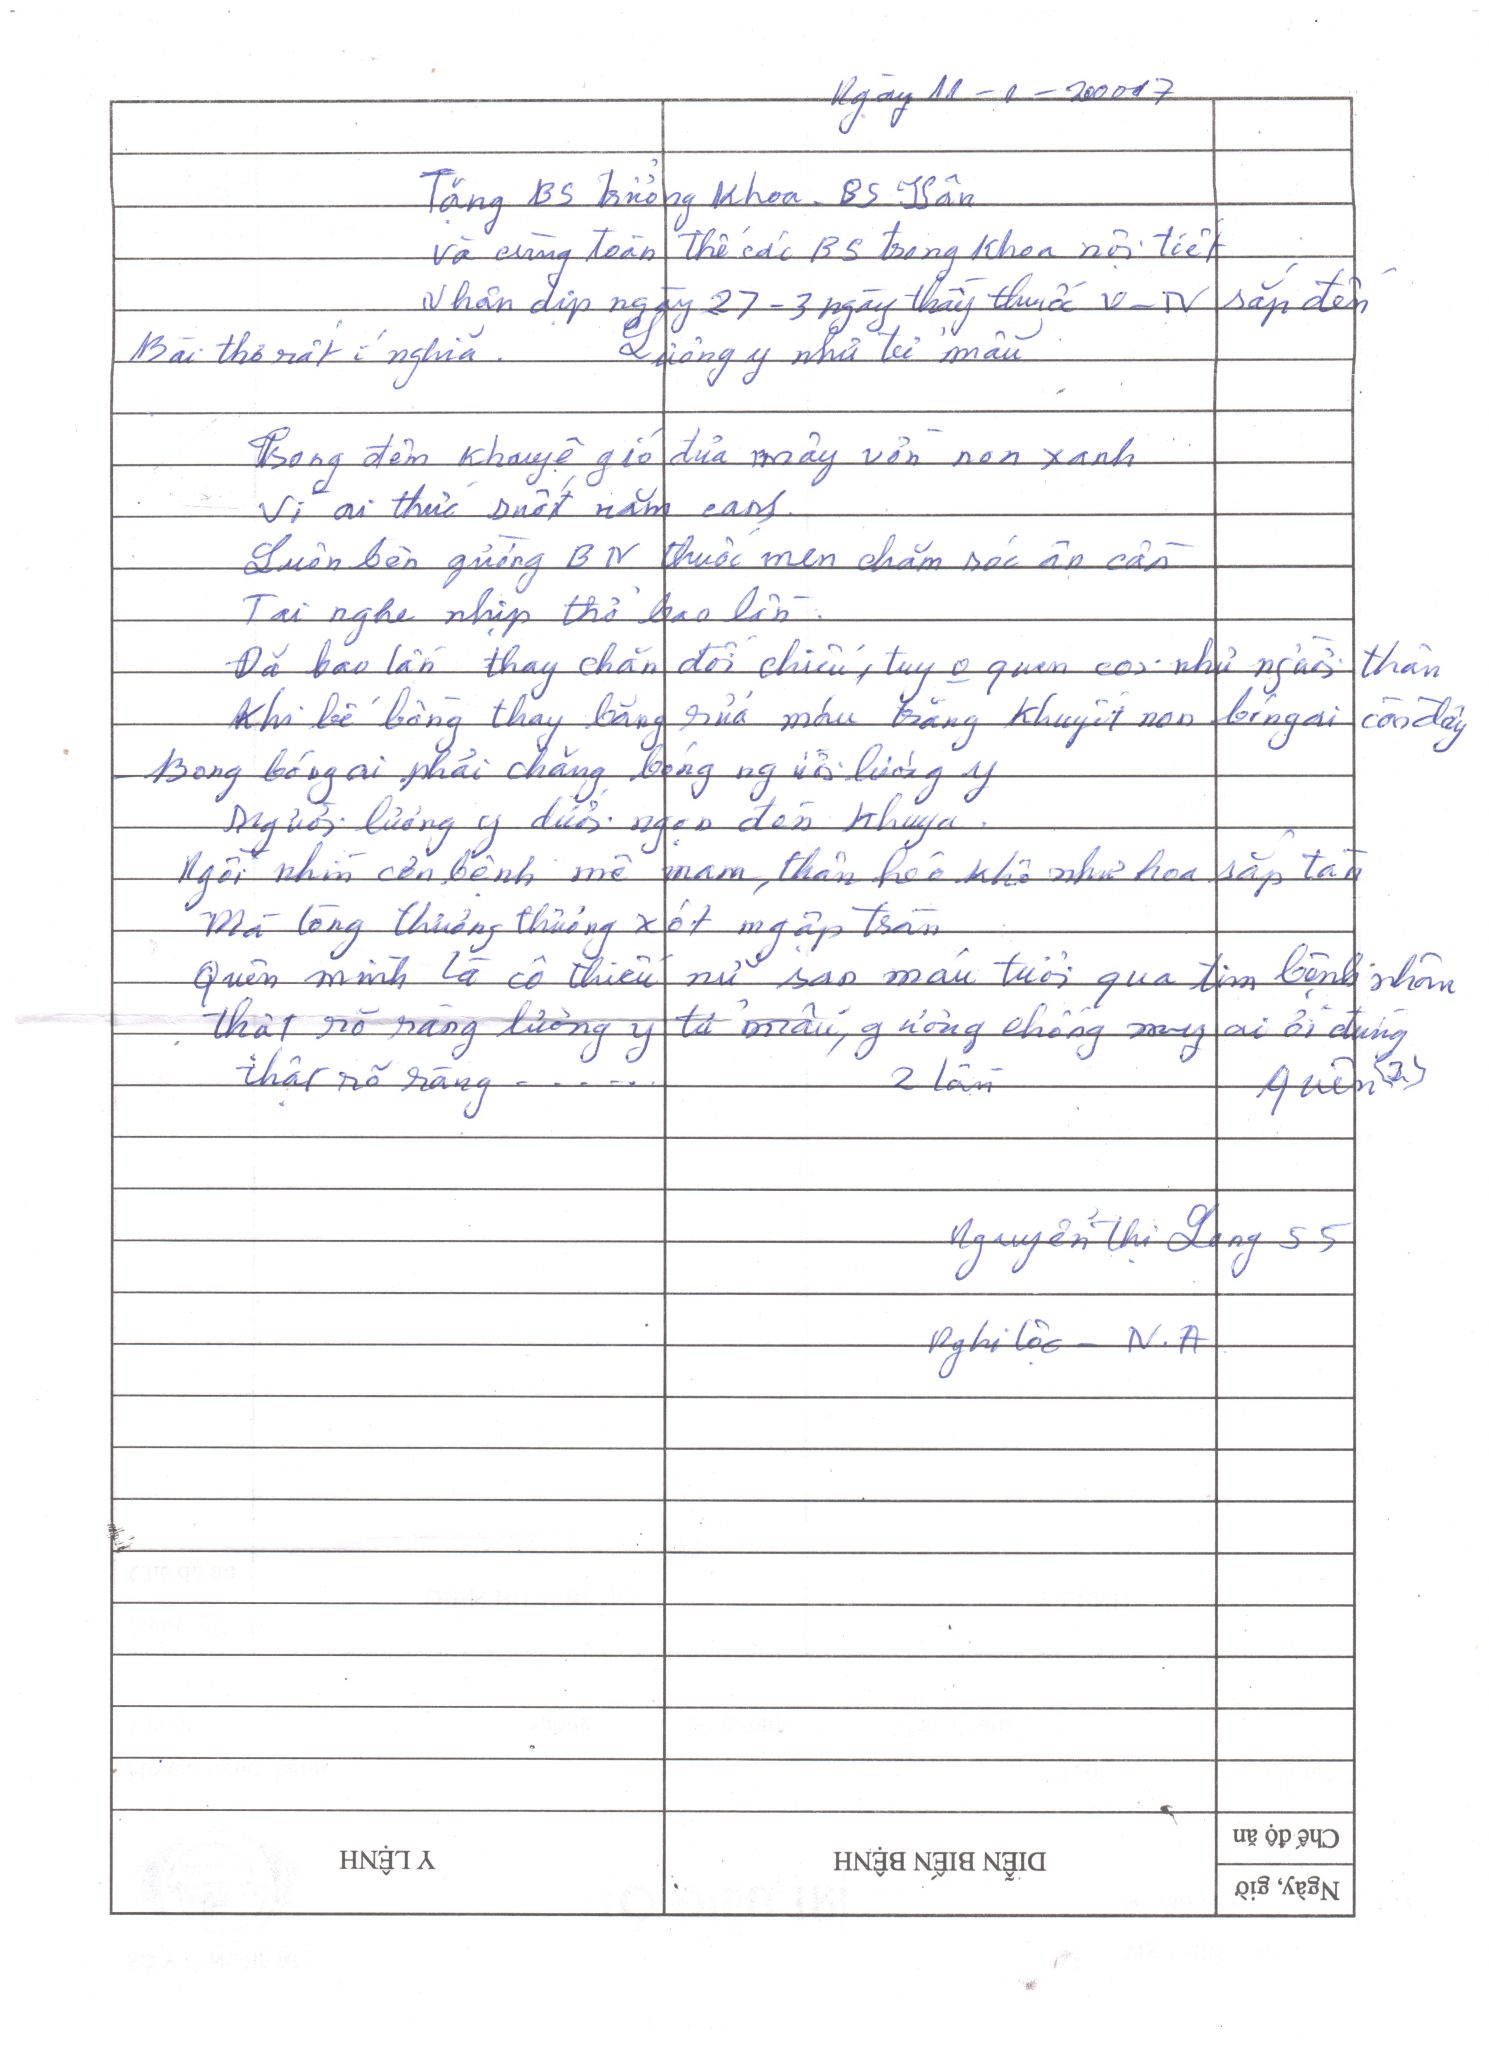 Ngày 11 - 1 - 200017
Tặng BS trưởng khoa. BS Trần
và cùng toàn thể các BS trong khoa nội tiết
Nhân dịp ngày 27-3 ngày thầy thuốc V-N sắp đến
Bài thơ rất í nghĩa. Lương y như từ mẫu
Trong đêm khuyê gió đưa mây vờn non xanh
Vì ai thức suốt năm canh.
Luôn bên gường BN thuốc men chăm sóc ân cần
Tai nghe nhịp thở bao lần.
Đã bao lần thay chăn đổi chiếu, tuy o quen coi như người thân
Khi bế bồng thay băng rửa máu trăng khuyết non bóng ai còn đây
Bong bóng ai phải chăng bóng người lương y
Người lương y dưới ngọn đèn khuya.
Ngồi nhìn cơn bệnh mê mam, thân héo khô như hoa sắp tàn
Mà lòng thương thương xót ngập tràn
Quên mình là cô thiếu nữ sao máu tươi qua tim bệnh nhân
thật rõ ràng lương y từ mẫu, gương chồng may ai ơi đừng
thật rõ ràng ....... 2 lần quên (2)
Nguyễn Thị Long 55
Nghi Lộc - N.A
Y LỆNH
DIỄN BIẾN BỆNH
Chế độ ăn
Ngày, giờ